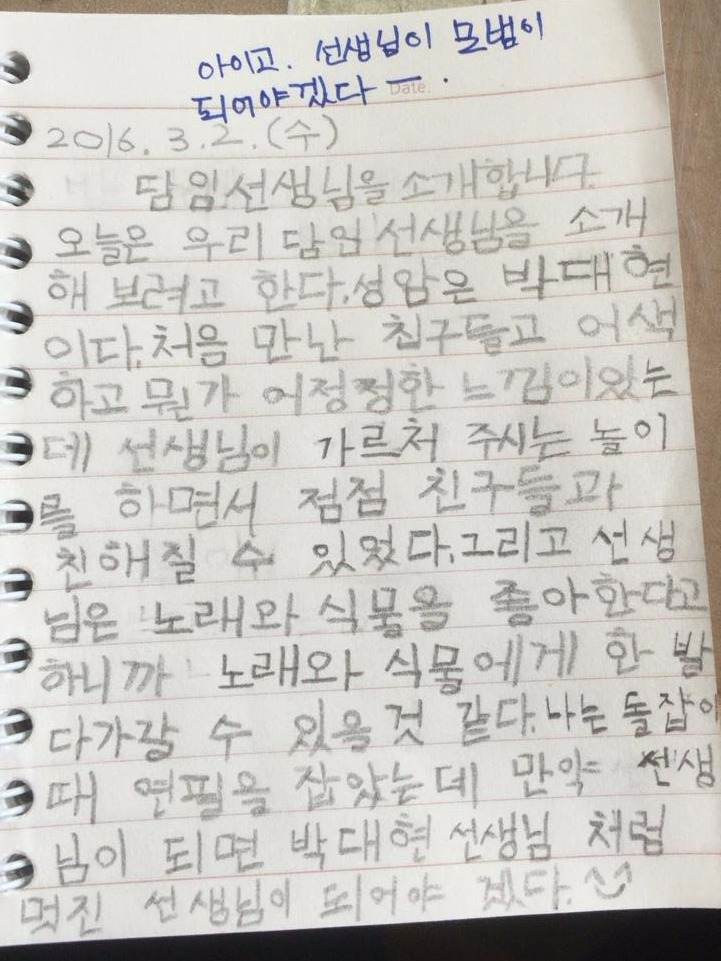 아이고. 선생님이 모범이
되어야겠다 ー.
Date.
2016. 3. 2. (수)
담임선생님을 소개합니다.
오늘은 우리 담임선생님을 소개
해 보려고 한다. 성암은 박대현
이다. 처음 만난 친구들고 어색
하고 뭔가 어정쩡한 느낌이있는
데 선생님이 가르처 주시는 놀이
를 하면서 점점 친구들과
친해질 수 있었다. 그리고 선생
님은 노래와 식물을 좋아한다고
하니까 노래와 식물에게 한 발
다가갈 수 있을것 같다. 나는 돌잡이
때 연필을 잡았는데 만약 선생
님이 되면 박대현 선생님 처럼
멋진 선생님이 되어야 겠다.